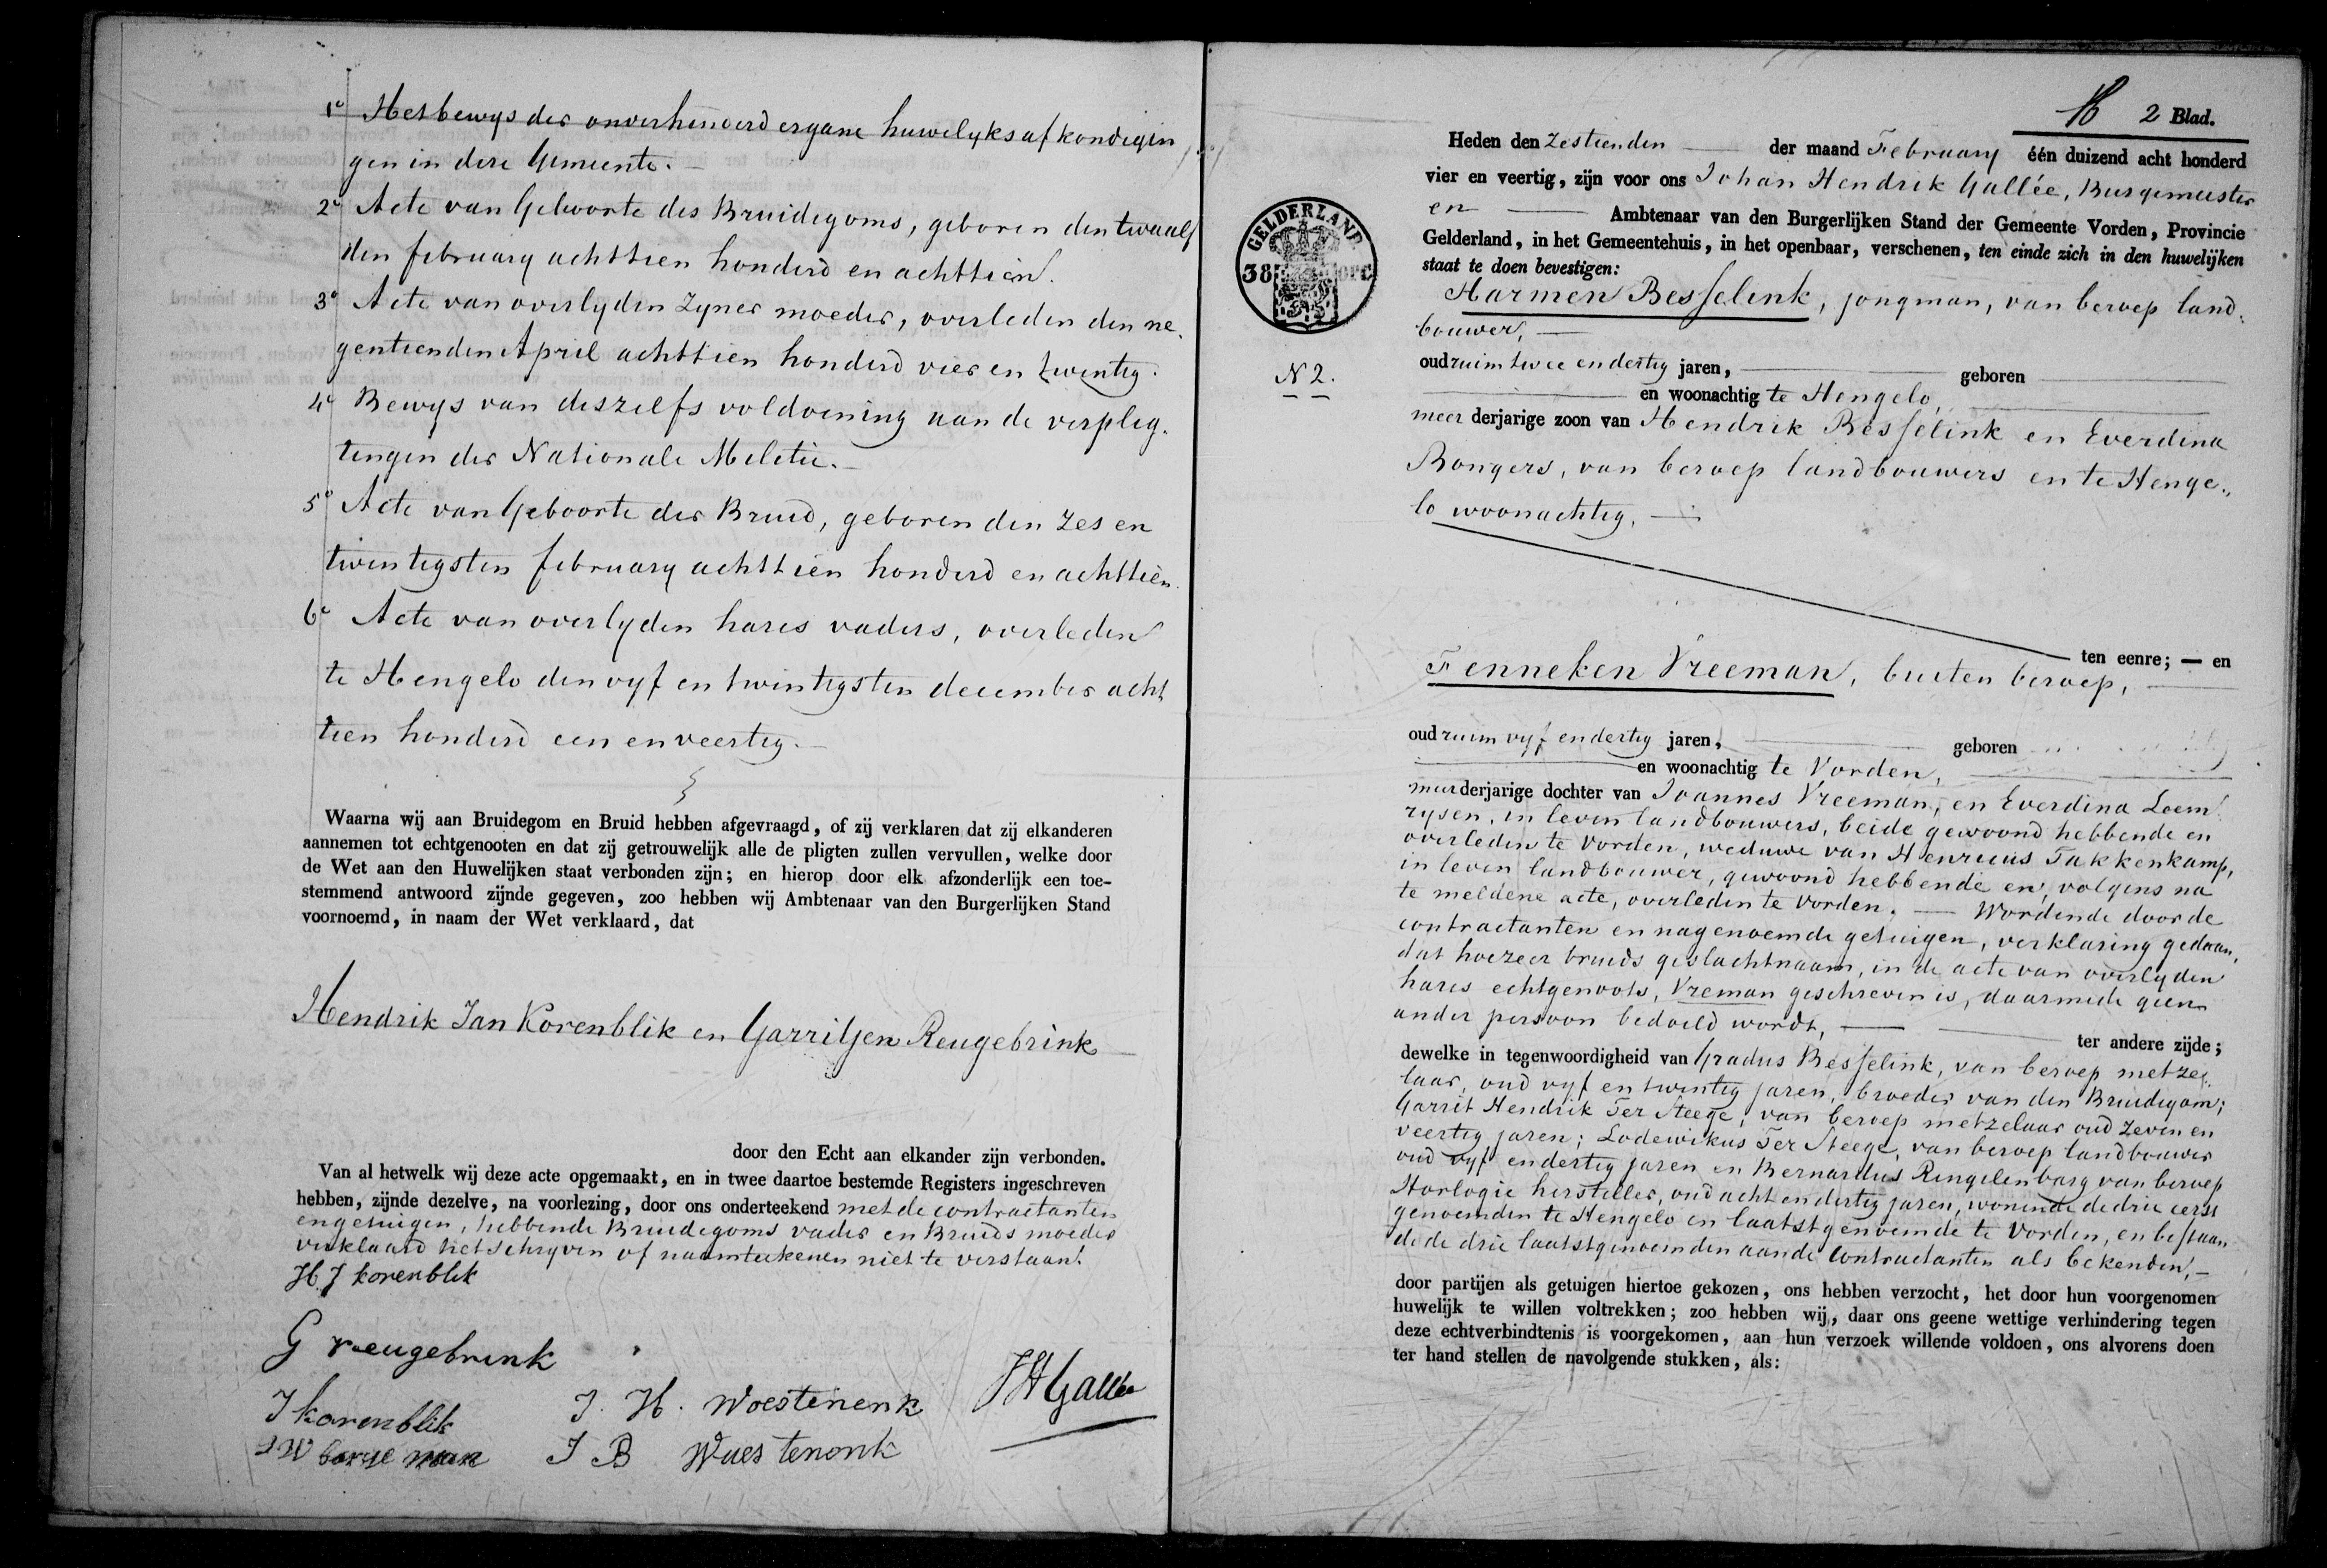 1e Het bewys der onverhinderd ergane huwelyksafkondigin
gen in dere Gemeente. —
2e Acte van Geboorte des Bruidegoms, geboren den twaalf
den february achttien honderd en achttien.
3e Acte van overlyden zyner moeder, overleden den ne.
gentienden April achttien honderd vier en twentig.
4e Bewys van deszelfs voldoening aan de verplig.
tingen der Nationale Militie. —
5e Acte van Geboorte der Bruid, geboren den zes en
twintigsten february achttien honderd en achttien.
6e Acte van overlyden hares vaders, overleden
te Hengelo den vyf en twintigsten december acht
tien honderd een en veertig. —
Waarna wij aan Bruidegom en Bruid hebben afgevraagd, of zij verklaren dat zij elkanderen
aannemen tot echtgenooten en dat zij getrouwelijk alle de pligten zullen vervullen, welke door
de Wet aan den Huwelijken staat verbonden zijn; en hierop door elk afzonderlijk een toe-
stemmend antwoord zijnde gegeven, zoo hebben wij Ambtenaar van den Burgerlijken Stand
voornoemd, in naam der Wet verklaard, dat
Hendrik Jan Korenblik en Garritjen Reugebrink
door den Echt aan elkander zijn verbonden.
Van al hetwelk wij deze acte opgemaakt, en in twee daartoe bestemde Registers ingeschreven
hebben, zijnde dezelve, na voorlezing, door ons onderteekend met de contractanten
en getuigen, hebbende Bruidegoms vader en Bruids moeder
verklaard het schryven of naamteekenen niet te verstaan.
H J korenblik
G reugebrink
J korenblik J. H. Woestenenk JHGallée
J B Waestenenk
2 Blad.
Heden den zestienden der maand February één duizend acht honderd
vier en veertig, zijn voor ons Johan Hendrik Gallée, Burgemeester
en Ambtenaar van den Burgerlijken Stand der Gemeente Vorden, Provincie
Gelderland, in het Gemeentehuis, in het openbaar, verschenen, ten einde zich in den huwelijken
staat te doen bevestigen:
GELDERLAND
38
N 2.
Harmen Besselink, jongman, van beroep land.
bouwer, —
oud ruim twee en dertig jaren, geboren
en woonachtig te Hengelo,
meerderjarige zoon van Hendrik Besselink en Everdina
Bongers, van beroep landbouwers en te Henge.,
lo woonachtig, —
ten eenre; — en
Fenneken Vreeman, buiten beroep,
oud ruim vyf en dertig jaren, geboren
en woonachtig te Vorden,
meerderjarige dochter van Joannes Vreeman, en Everdina Loem
rysen, in leven landbouwers, beide gewoond hebbende en
overleden te Vorden, weduwe van Henricus Takkenkamp,
in leven landbouwer, gewoond hebbende en, volgens na
te meldene acte, overleden te Vorden. — Wordende door de
contractanten en nagenoemde getuigen, verklaring gedaan,
dat hoezeer bruids geslachtnaam, in de acte van overlyden
hares echtgenoots, Vreman geschreven is, daarmede geen
ander persoon bedoeld wordt,
ter andere zijde;
dewelke in tegenwoordigheid van Gradus Besselink, van beroep metze.
laar, oud vyf en twintig jaren, broeder van den Bruidegom;
Garrit Hendrik Ter Steege, van beroep metzelaar oud zeven en
veertig jaren; Lodewikus Ter Steege, van beroep landbouwer
oud vyf en dertig jaren en Bernardus Ringelenbarg van beroep
Horlogie hersteller, oud acht en dertig jaren, wonende de drie eerst
genoemden te Hengelo en laatstgenoemde te Vorden, en bestaan
de de drie laatstgenoemden aan de Contractanten als bekenden, —
door partijen als getuigen hiertoe gekozen, ons hebben verzocht, het door hun voorgenomen
huwelijk te willen voltrekken; zoo hebben wij, daar ons geene wettige verhindering tegen
deze echtverbindtenis is voorgekomen, aan hun verzoek willende voldoen, ons alvorens doen
ter hand stellen de navolgende stukken, als: